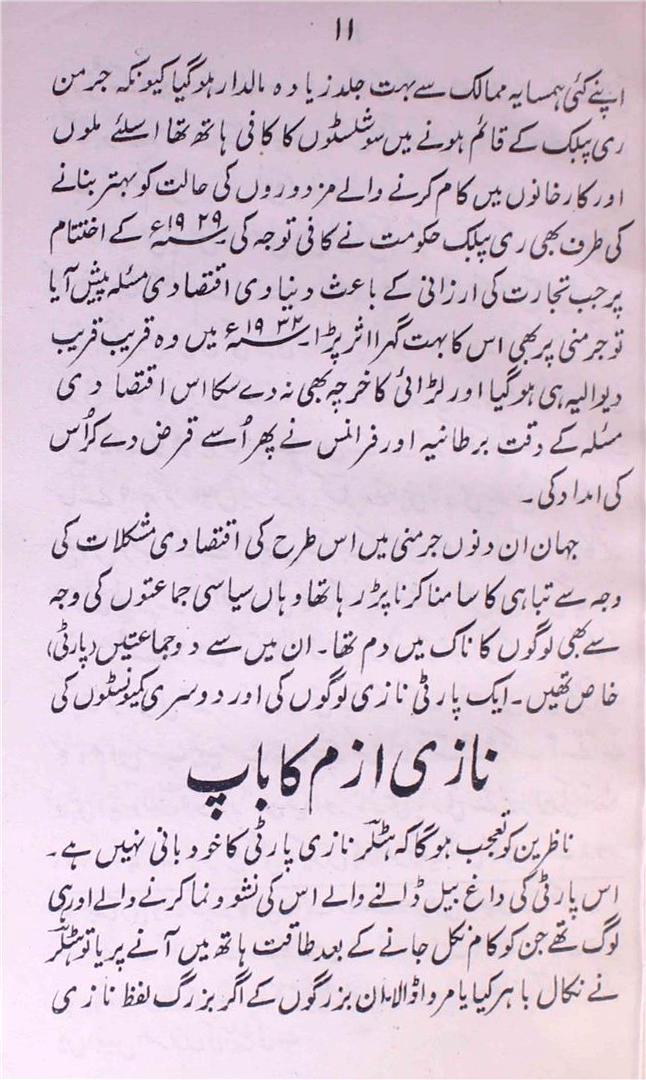 ۱۱
اپنے کئی ہمسایہ ممالک سے بہت جلد زیادہ مالدار ہو گیا کیونکہ جرمن
ری پبلک کے قائم ہونے میں سوشلسٹوں کا کافی ہاتھ تھا اسلئے ملوں
اور کارخانوں میں کام کرنے والے مزدوروں کی حالت کو بہتر بنانے
کی طرف بھی ری پبلک حکومت نے کافی توجہ کی ۱۹۲۹ء کے اختتام
پر جب تجارت کی ارزانی کے باعث دنیاوی اقتصادی مسئلہ پیش آیا
تو جرمنی پر بھی اس کا بہت گہرا اثر پڑا۔ ۱۹۳۲ء میں وہ قریب قریب
دیوالیہ ہی ہو گیا اور لڑائی کا خرچہ بھی نہ دے سکا اس اقتصادی
مسئلہ کے وقت برطانیہ اور فرانس نے پھر اُسے قرض دے کر اُس
کی امداد کی۔
جہان ان دنوں جرمنی میں اس طرح کی اقتصادی مشکلات کی
وجہ سے تباہی کا سامنا کرنا پڑ رہا تھا وہاں سیاسی جماعتوں کی وجہ
سے بھی لوگوں کا ناک میں دم تھا۔ ان میں سے دو جماعتیں (پارٹی)
خاص تھیں۔ ایک پارٹی نازی لوگوں کی اور دوسری کیونسٹوں کی
نازی ازم کا باپ
ناظرین کو تعجب ہوگا کہ ہٹلر نازی پارٹی کا خود بانی نہیں ہے۔
اس پارٹی کی داغ بیل ڈالنے والے اس کی نشوونما کرنے والے اور ہی
لوگ تھے جن کو کام نکل جانے کے بعد طاقت ہاتھ میں آنے پر یا تو ہٹلر
نے نکال باہر کیا یا مروا ڈالا۔ ان بزرگوں کے اگر بزرگ لفظ نازی